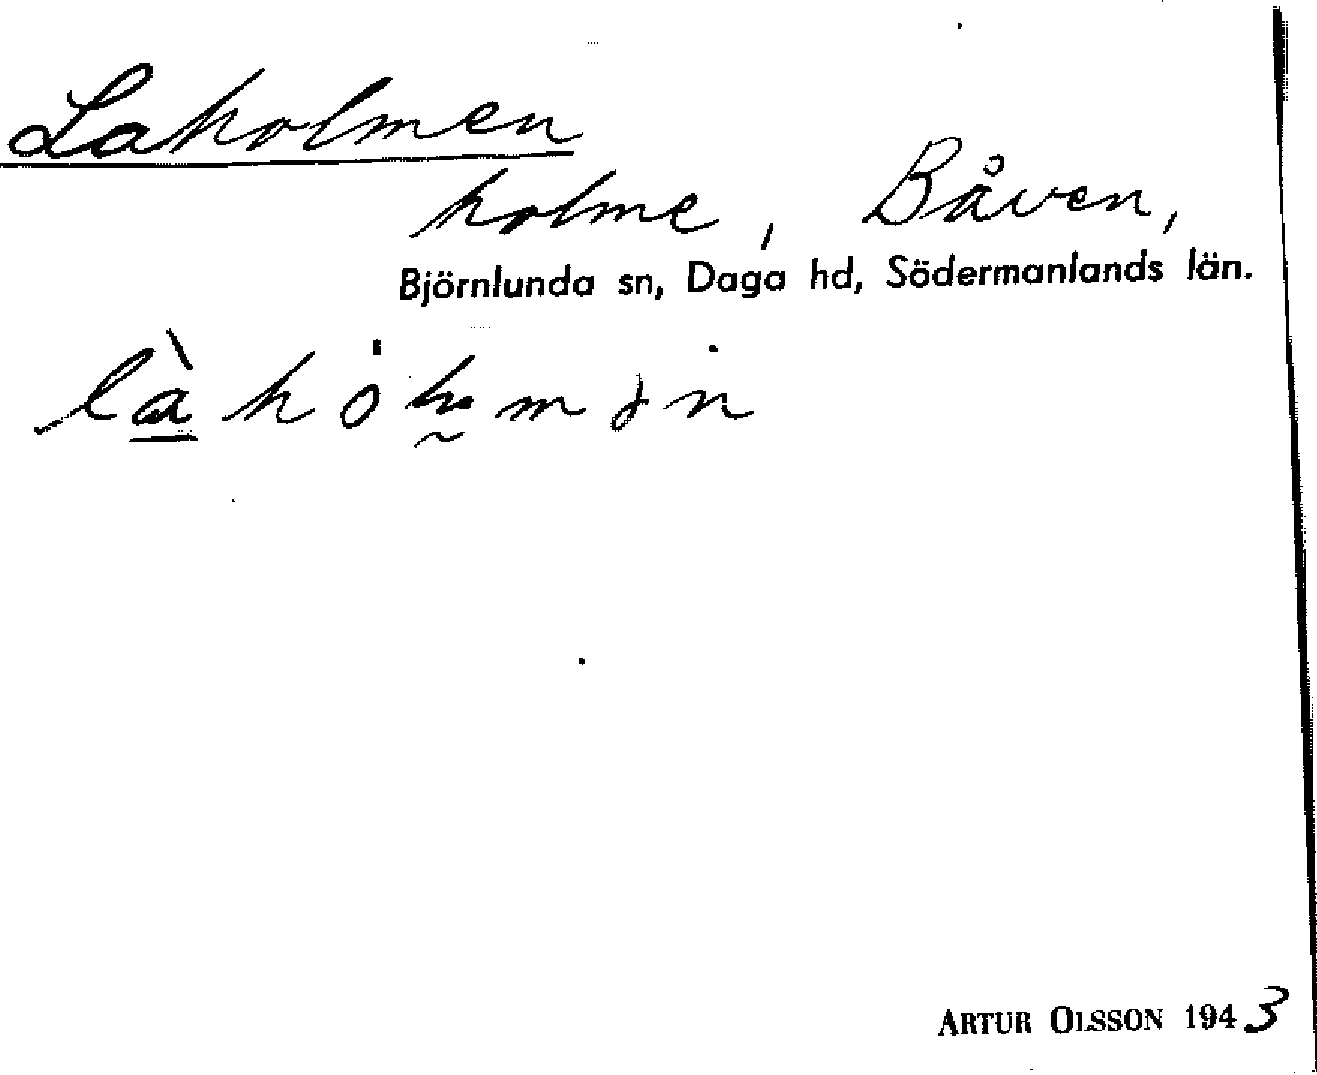 Laholmen
holme, Båven,
Björnlunda sn, Daga hd, Södermanlands län.
ARTUR OLSSON 1943